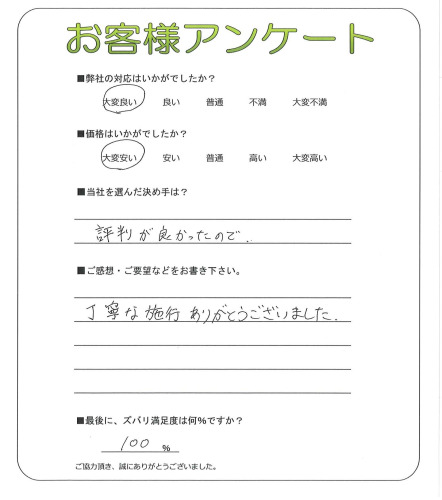 お客様アンケート
■弊社の対応はいかがでしたか?
大変良い 良い 普通 不満 大変不満
■価格はいかがでしたか?
大変安い 安い 普通 高い 大変高い
■当社を選んだ決め手は?
評判が良かったので.
■ご感想・ご要望などをお書き下さい。
丁寧な施行ありがとうございました.
■最後に、ズバリ満足度は何%ですか?
100 %
ご協力頂き、誠にありがとうございました。